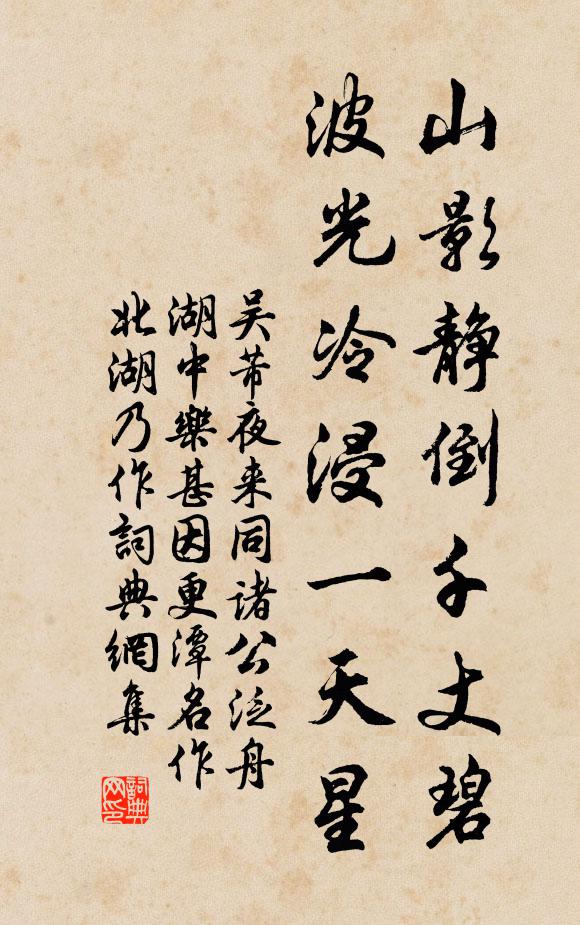 山影静倒千丈碧
波光冷浸一天星
吴芾夜来同诸公泛舟
湖中樂甚因更潭名作
北湖乃作詞典網集
詞典网印